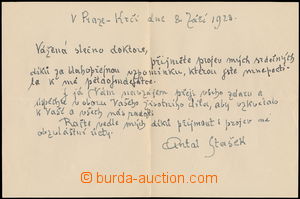 V Praze-Krči dne 8. Září 1923.
Vážená slečno doktore,
přijměte projev mých srdečných
díků za blahopřejnou vzpomínku, kterou jste mne poctila
k mé pětaosmdesátce.
I já Vám navzájem přeji všeho zdaru a
úspěchů v oboru Vašeho životního díla, aby vzkvétalo
k Vaší a všech nás radosti.
Račte vedle mých díků přijmout i projev mé
obzvláštní úcty.
Antal Stašek
© burda-auction.com